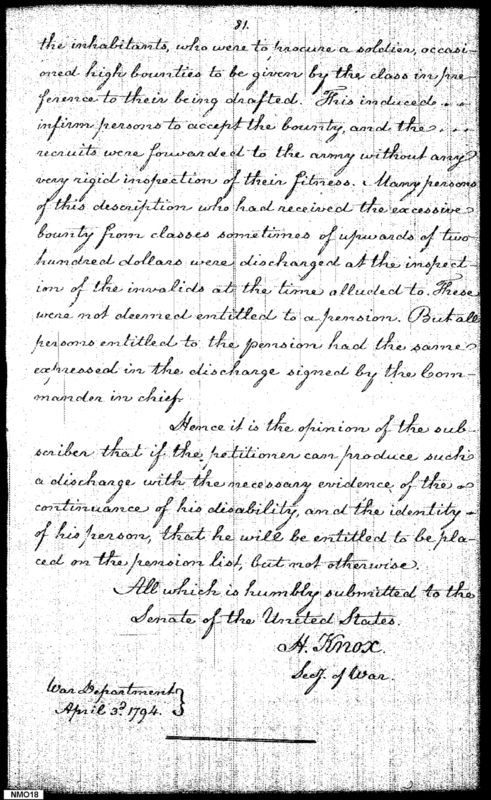 81.
the inhabitants, who were to procure a soldier, occasi-
oned high bounties to be given by the class in pre-
ference to their being drafted. This induced
infirm persons to accept the bounty, and the
recruits were forwarded to the army without any
very rigid inspection of their fitness. Many persons
of this description who had received the excessive
bounty from classes sometimes of upwards of two
hundred dollars were discharged at the inspect-
ion of the invalids at the time alluded to. These
were not deemed entitled to a pension. But all
persons entitled to the pension had the same
expressed in the discharge signed by the Com-
mander in chief.
Hence it is the opinion of the sub-
scriber that if the petitioner can produce such
a discharge with the necessary evidence of the
continuance of his disability, and the identity
of his person, that he will be entitled to be pla-
ced on the pension list, but not otherwise.
All which is humbly submitted to the
Senate of the United States.
H. Knox.
Secy. of War.
War Department
April 3d. 1794.
NMO18